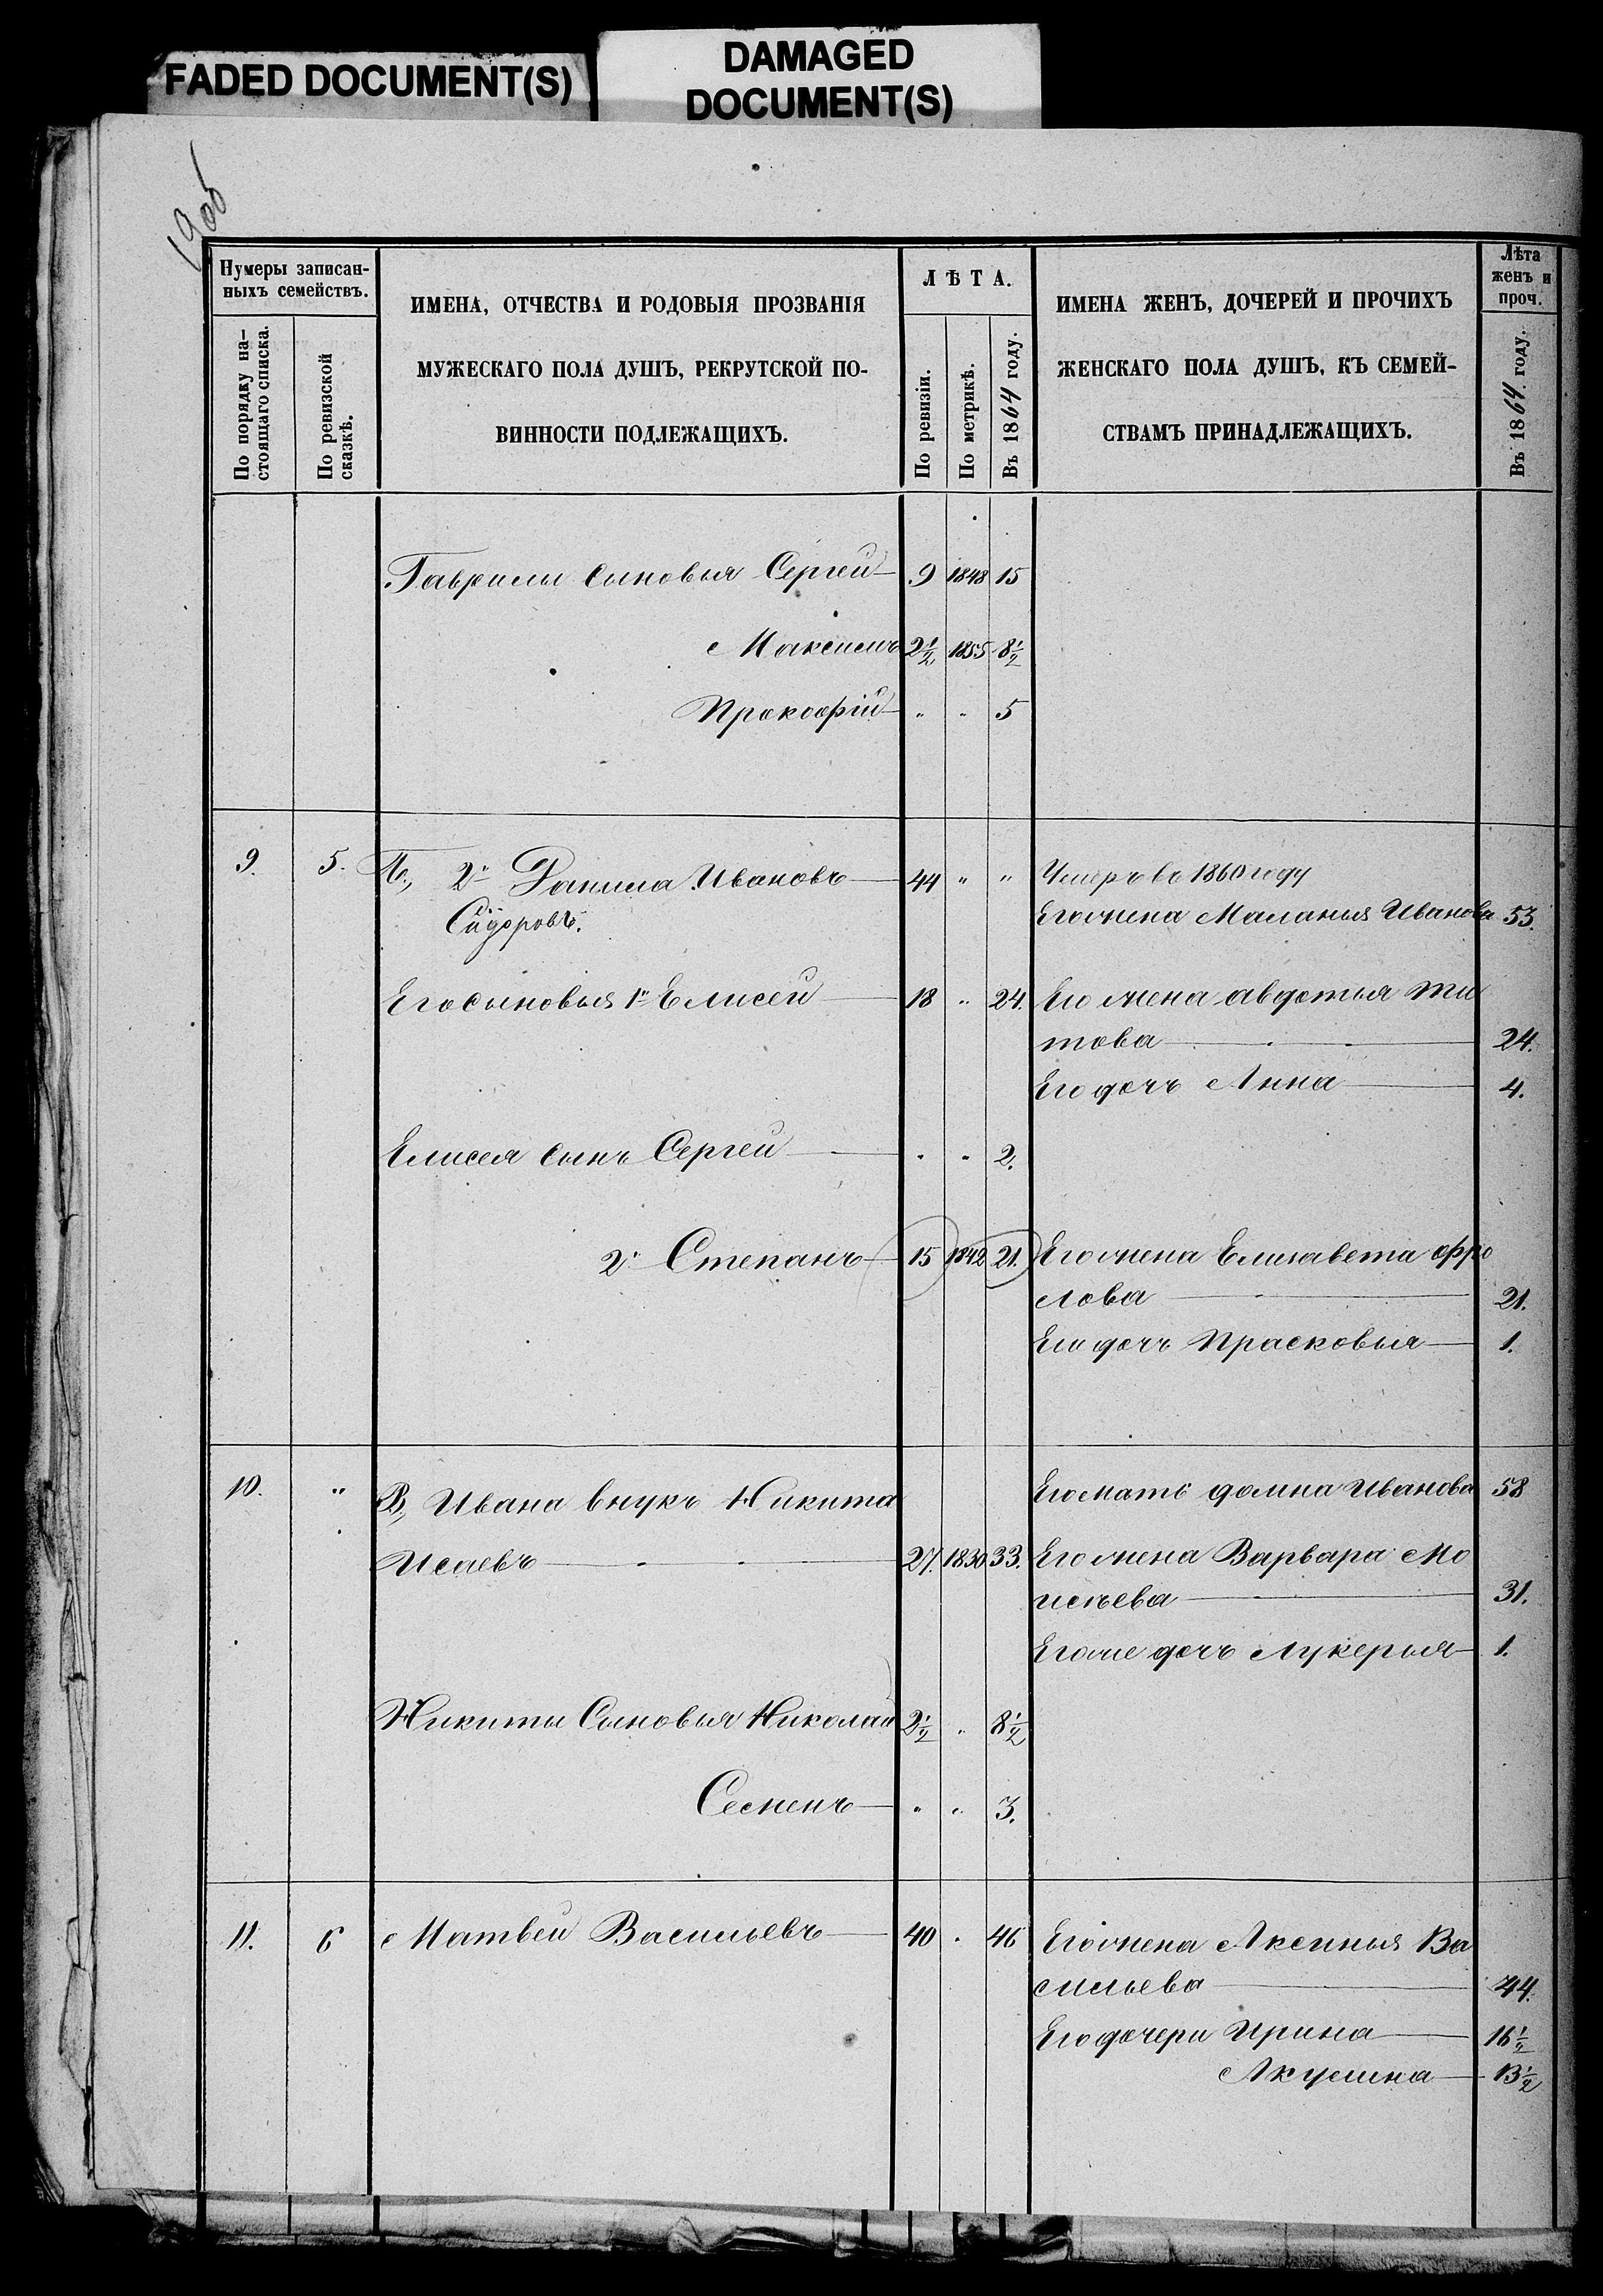 FADED DOCUMENT(S)
DAMAGED
DOCUMENT(S)
190об
Нумеры записан-
ныхъ семействъ.
По порядку на-
стоящаго списка.
По ревизской
сказкѣ.
ИМЕНА, ОТЧЕСТВА И РОДОВЫЯ ПРОЗВАНІЯ
МУЖЕСКАГО ПОЛА ДУШЪ, РЕКРУТСКОЙ ПО-
ВИННОСТИ ПОДЛЕЖАЩИХЪ.
ЛѢТА.
По ревизіи.
По метрикѣ.
Въ 1864 году.
ИМЕНА ЖЕНЪ, ДОЧЕРЕЙ И ПРОЧИХЪ
ЖЕНСКАГО ПОЛА ДУШЪ, КЪ СЕМЕЙ-
СТВАМЪ ПРИНАДЛЕЖАЩИХЪ.
Лѣта
женъ и
проч.
Въ 1864 году.
Гаврилы сыновья Сергей 9 1848 15
Максимъ 2½ 1855 8½
Прокофій " " 5
9. 5. 2й Данила Ивановъ 44 " " Умеръ въ 1860 году
Сидоровъ. Его жена Маланья Иванова 53.
Его сыновья 1й Елисей 18 " 24. Его жена авдотья ти
това 24.
Его дочь Анна 4.
Елисея сынъ Сергей " " 2.
2й Степанъ 15 1842 21. Его жена Елизавета фро
лова 21.
Его дочь Прасковья 1.
10. " В, Ивана внукъ Никита Его мать домна Иванова 58
Исаевъ 27. 1830 33. Его жена Варвара Мо
исѣева 31.
Его же дочь Лукерья 1.
Никиты Сыновья Николай 2½ " 8½
Семенъ " " 3.
11. 6 Матвей Васильевъ 40 " 46 Его жена Аксинья Ва
сильева 44.
Его дочери Ирина 16½
Акулина 13½